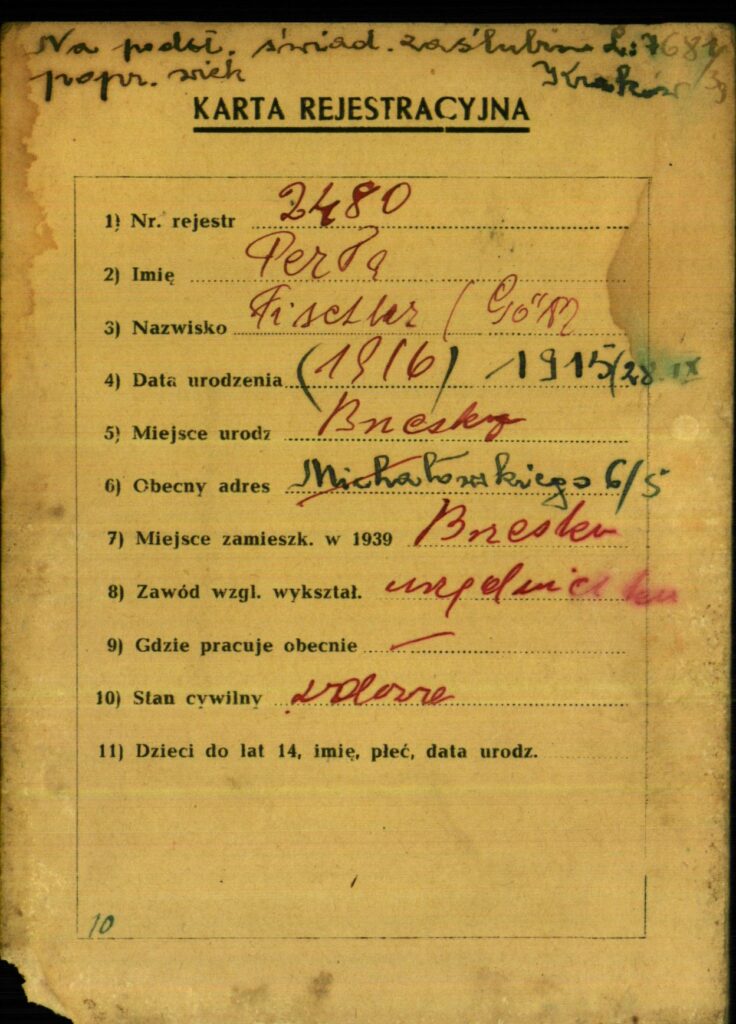 Na podst. świad. zaślubin L: 7681
popr. wiek Kraków
KARTA REJESTRACYJNA
1) Nr. rejestr 2480
2) Imię Perła
3) Nazwisko Fischler (
4) Data urodzenia (1916) 1915 (28 IX
5) Miejsce urodz Brzesko
6) Obecny adres Michałowskiego 6/5
7) Miejsce zamieszk. w 1939 Brzesko
8) Zawód wzgl. wykształ. urzędniczka
9) Gdzie pracuje obecnie —
10) Stan cywilny wdowa
11) Dzieci do lat 14, imię, płeć, data urodz.
10